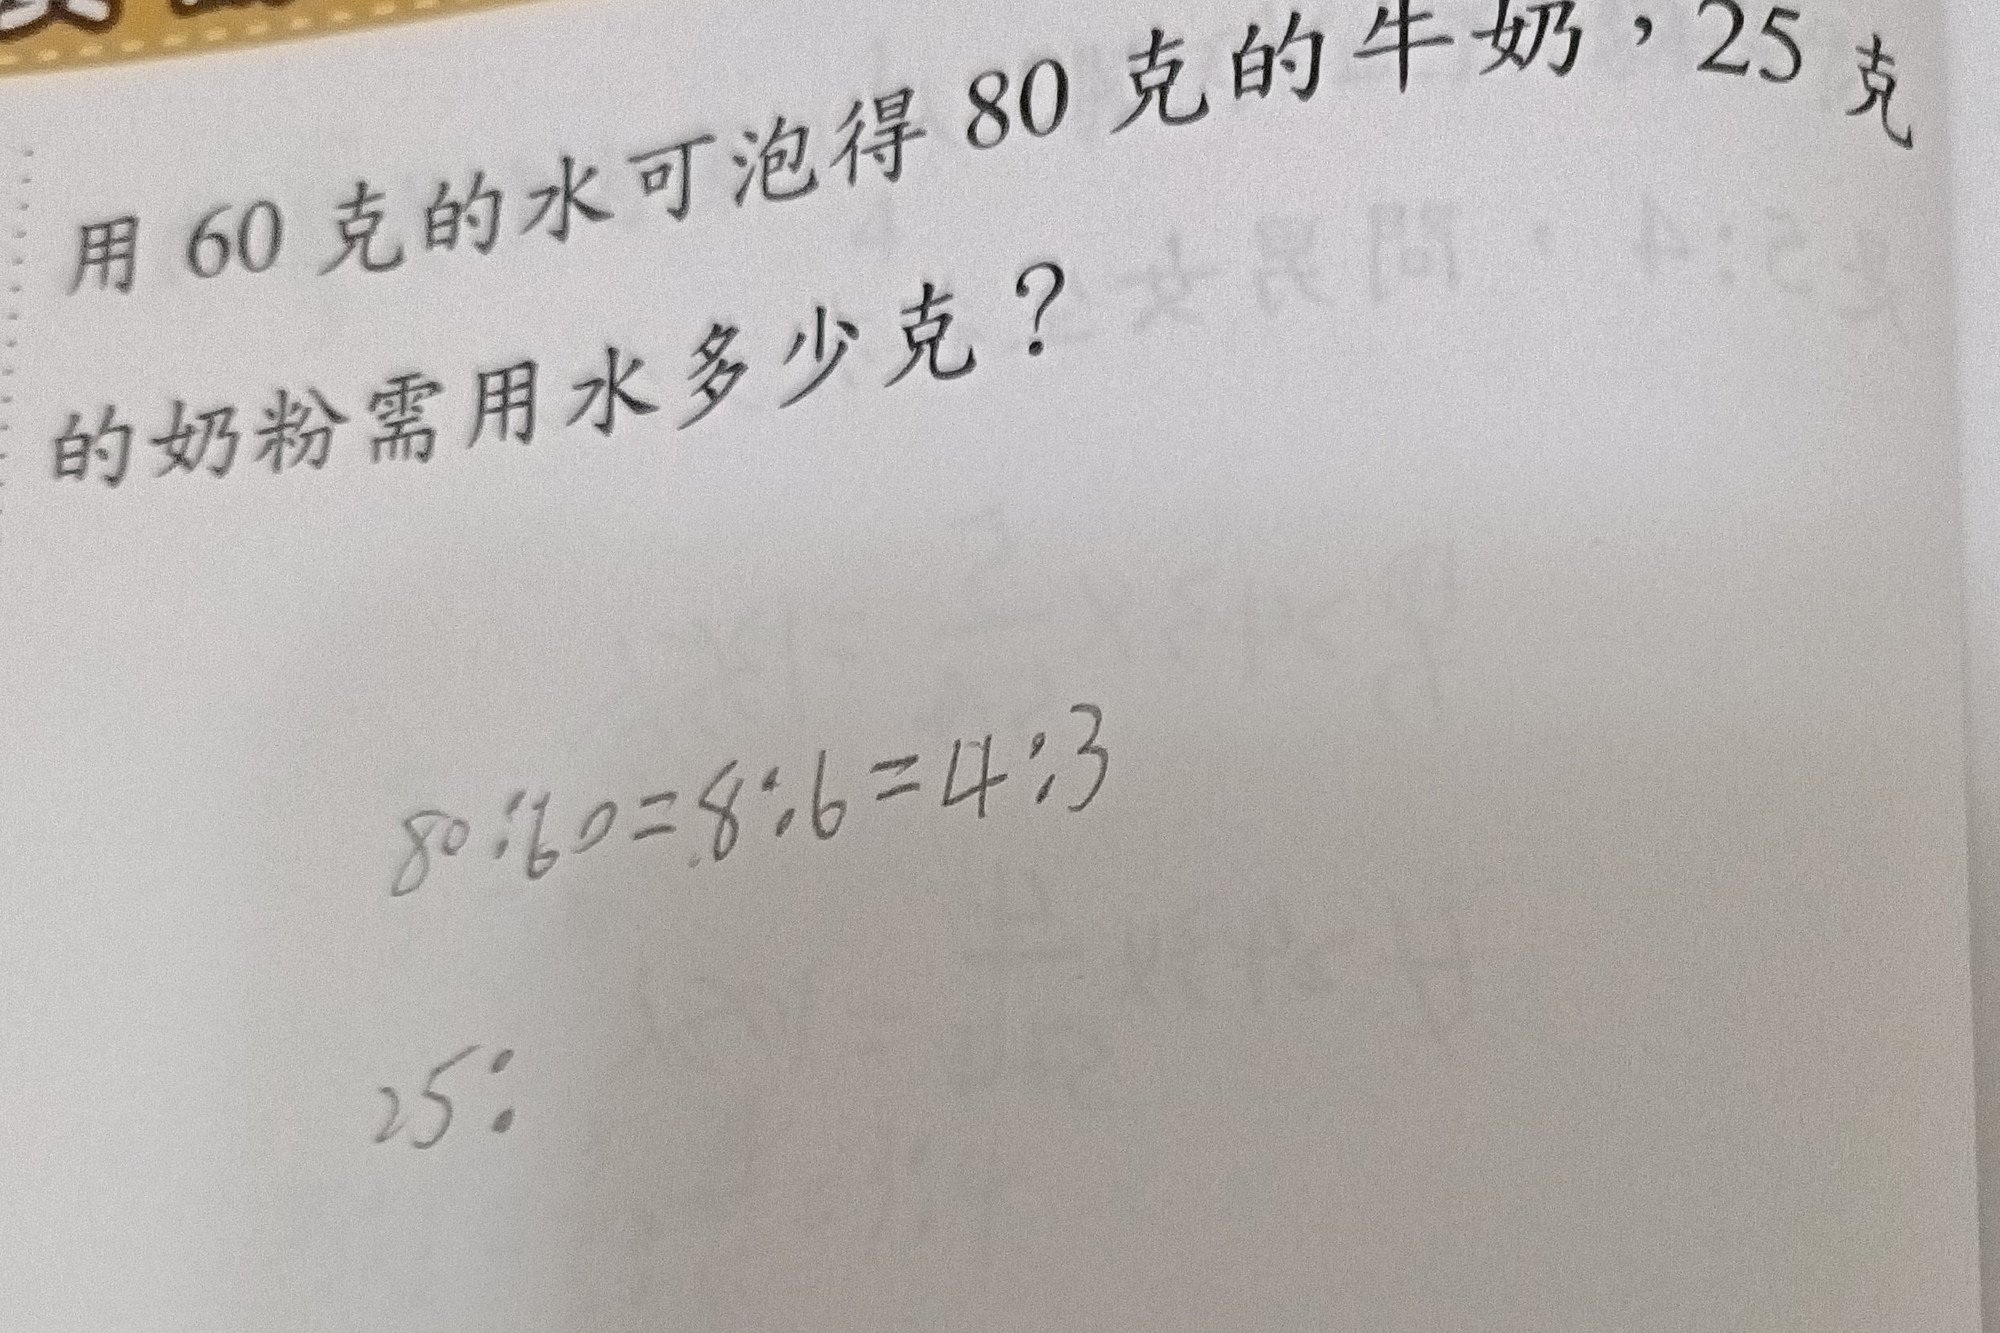 用 60 克的水可泡得 80 克的牛奶，25 克
的奶粉需用水多少克？
80:60=8:6=4:3
25: